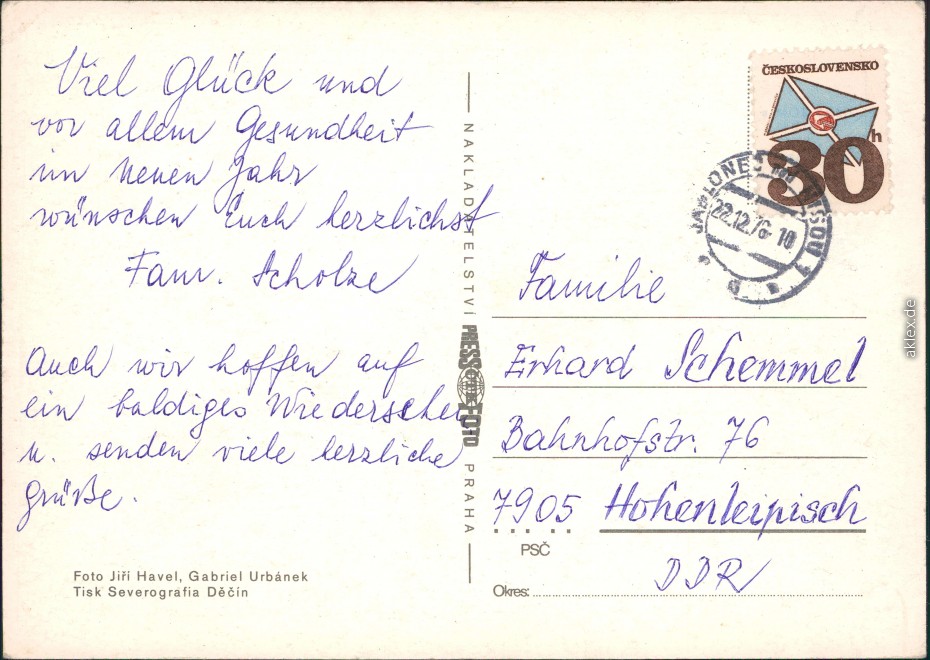 Viel Glück und
vor allem Gesundheit
im neuen Jahr
wünschen Euch herzlichst
Fam. Scholze
Auch wir hoffen auf
ein baldiges Wiedersehen
u. senden viele herzliche
Grüße.
Foto Jiří Havel, Gabriel Urbánek
Tisk Severografia Děčín
NAKLADATELSTVÍ
PRESSFOTO
PRAHA
ČESKOSLOVENSKO
30h
22.12.76-10
Familie
Erhard Schemmel
Bahnhofstr. 76
7905 Hohenleipisch
PSČ
DDR
Okres:
aklex.de